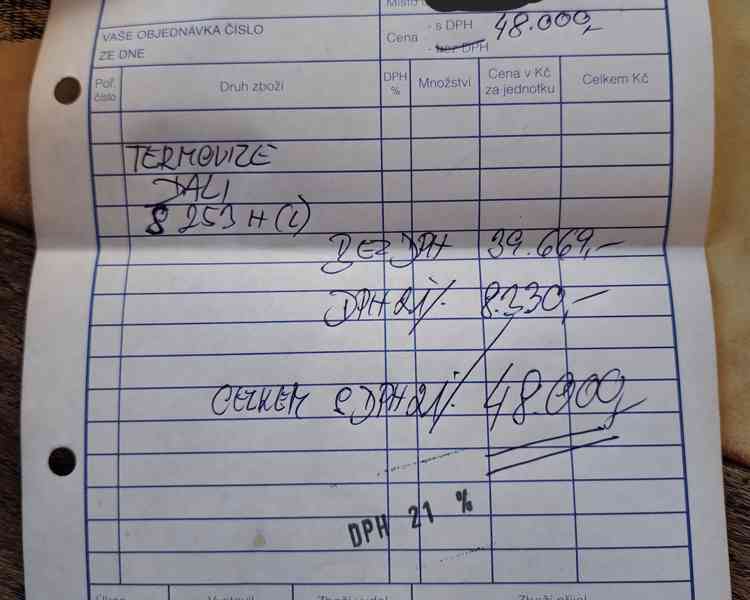 Místo
VAŠE OBJEDNÁVKA ČÍSLO
ZE DNE
Cena - s DPH 48.000,-
- bez DPH
Poř. číslo Druh zboží DPH % Množství Cena v Kč za jednotku Celkem Kč
TERMOVIZE
DALI
S 253 H (L)
BEZ DPH 39.669,-
DPH 21% 8.330,-
CELKEM S DPH 21% 48.000,-
DPH 21 %
Vystavil Zboží vydal Zboží přijal